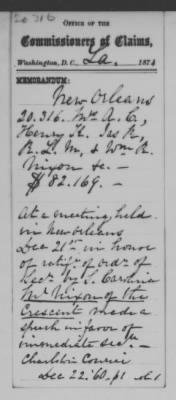 20316
OFFICE OF THE
Commissioners of Claims,
Washington, D.C., La. 1874
MEMORANDUM:
New Orleans
20.316. Mrs A. C,
Henry H. Jas R,
R. L. M, & Wm R.
Nixon &c. —
$82.169. —
At a meeting, held
in New Orleans
Dec 21st in honor
of ratifn. of ordn. of
Secn. by S. Carolina
Mr Nixon of the
Crescent made a
speech in favor of
immediate secn. —
Charleston Courier
Dec 22 '60 - p1